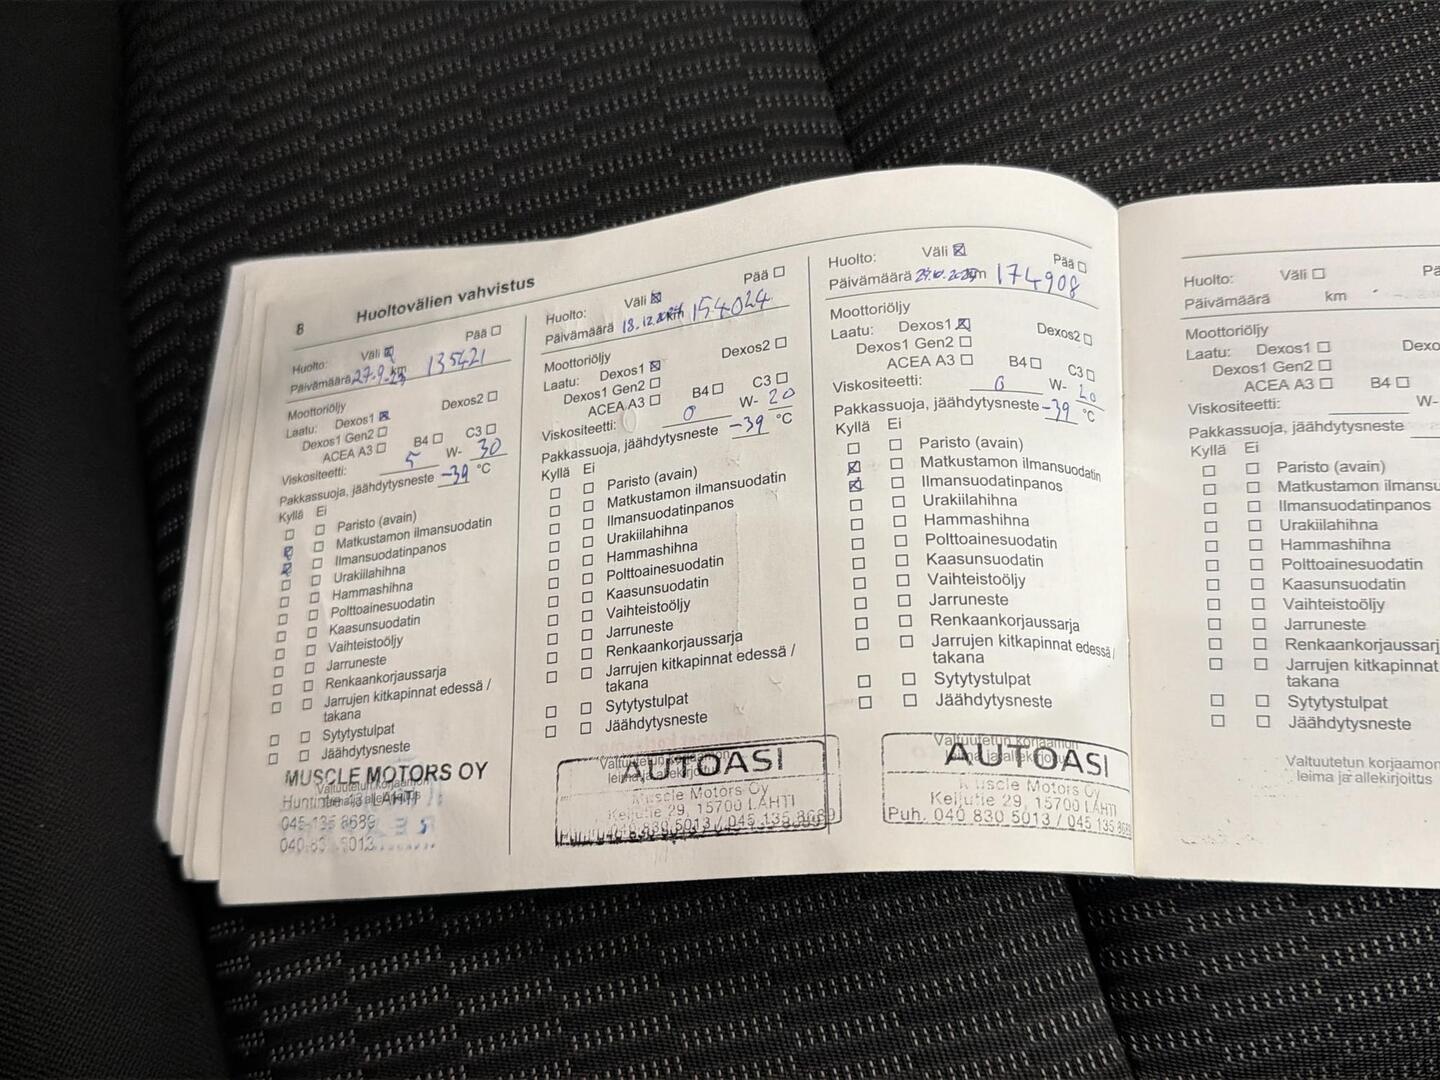 8 Huoltovälien vahvistus
Huolto: Väli ☒ Pää ☐
Päivämäärä 27.9.23 km 135421
Moottoriöljy
Laatu: Dexos1 ☒ Dexos2 ☐
Dexos1 Gen2 ☐
ACEA A3 ☐ B4 ☐ C3 ☐
Viskositeetti: 5 W- 30
Pakkassuoja, jäähdytysneste -39 °C
Kyllä Ei
☐ ☐ Paristo (avain)
☒ ☐ Matkustamon ilmansuodatin
☒ ☐ Ilmansuodatinpanos
☐ ☐ Urakiilahihna
☐ ☐ Hammashihna
☐ ☐ Polttoainesuodatin
☐ ☐ Kaasunsuodatin
☐ ☐ Vaihteistoöljy
☐ ☐ Jarruneste
☐ ☐ Renkaankorjaussarja
☐ ☐ Jarrujen kitkapinnat edessä /
takana
☐ ☐ Sytytystulpat
☐ ☐ Jäähdytysneste
MUSCLE MOTORS OY
Valtuutetun korjaamon
LAHTI
045 135 8689
5013
Huolto: Väli ☒ Pää ☐
Päivämäärä 18.12. km 154024
Moottoriöljy
Laatu: Dexos1 ☒ Dexos2 ☐
Dexos1 Gen2 ☐
ACEA A3 ☐ B4 ☐ C3 ☐
Viskositeetti: 0 W- 20
Pakkassuoja, jäähdytysneste -39 °C
Kyllä Ei
☐ ☐ Paristo (avain)
☐ ☐ Matkustamon ilmansuodatin
☐ ☐ Ilmansuodatinpanos
☐ ☐ Urakiilahihna
☐ ☐ Hammashihna
☐ ☐ Polttoainesuodatin
☐ ☐ Kaasunsuodatin
☐ ☐ Vaihteistoöljy
☐ ☐ Jarruneste
☐ ☐ Renkaankorjaussarja
☐ ☐ Jarrujen kitkapinnat edessä /
takana
☐ ☐ Sytytystulpat
☐ ☐ Jäähdytysneste
Valtuutetun korjaamon
AUTOASI
leima ja allekirjoitus
Muscle Motors Oy
Keijutie 29, 15700 LAHTI
Puh. 040 830 5013 / 045 135 8689
Huolto: Väli ☒ Pää ☐
Päivämäärä km 174908
Moottoriöljy
Laatu: Dexos1 ☒ Dexos2 ☐
Dexos1 Gen2 ☐
ACEA A3 ☐ B4 ☐ C3 ☐
Viskositeetti: 0 W- 20
Pakkassuoja, jäähdytysneste -39 °C
Kyllä Ei
☐ ☐ Paristo (avain)
☒ ☐ Matkustamon ilmansuodatin
☒ ☐ Ilmansuodatinpanos
☐ ☐ Urakiilahihna
☐ ☐ Hammashihna
☐ ☐ Polttoainesuodatin
☐ ☐ Kaasunsuodatin
☐ ☐ Vaihteistoöljy
☐ ☐ Jarruneste
☐ ☐ Renkaankorjaussarja
☐ ☐ Jarrujen kitkapinnat edessä /
takana
☐ ☐ Sytytystulpat
☐ ☐ Jäähdytysneste
Valtuutetun korjaamon
AUTOASI
leima ja allekirjoitus
Muscle Motors Oy
Keijutie 29, 15700 LAHTI
Puh. 040 830 5013 / 045 135 8689
Huolto: Väli ☐ Pä
Päivämäärä km
Moottoriöljy
Laatu: Dexos1 ☐ Dexo
Dexos1 Gen2 ☐
ACEA A3 ☐ B4 ☐
Viskositeetti: W-
Pakkassuoja, jäähdytysneste
Kyllä Ei
☐ ☐ Paristo (avain)
☐ ☐ Matkustamon ilmansu
☐ ☐ Ilmansuodatinpanos
☐ ☐ Urakiilahihna
☐ ☐ Hammashihna
☐ ☐ Polttoainesuodatin
☐ ☐ Kaasunsuodatin
☐ ☐ Vaihteistoöljy
☐ ☐ Jarruneste
☐ ☐ Renkaankorjaussarj
☐ ☐ Jarrujen kitkapinnat
takana
☐ ☐ Sytytystulpat
☐ ☐ Jäähdytysneste
Valtuutetun korjaamon
leima ja allekirjoitus